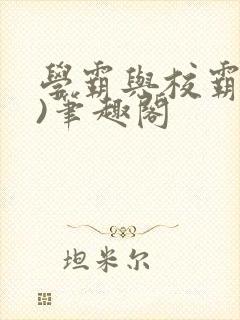 學霸與校霸
)筆趣閣
坦米尔